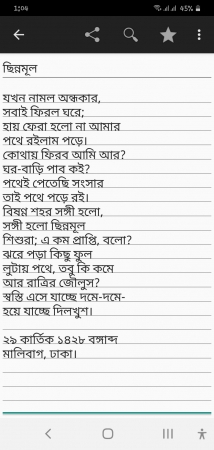 1:04
45%
ছিন্নমূল
যখন নামল অন্ধকার,
সবাই ফিরল ঘরে;
হায় ফেরা হলো না আমার
পথে রইলাম পড়ে।
কোথায় ফিরব আমি আর?
ঘর-বাড়ি পাব কই?
পথেই পেতেছি সংসার
তাই পথে পড়ে রই।
বিষণ্ণ শহর সঙ্গী হলো,
সঙ্গী হলো ছিন্নমূল
শিশুরা; এ কম প্রাপ্তি, বলো?
ঝরে পড়া কিছু ফুল
লুটায় পথে, তবু কি কমে
আর রাত্রির জৌলুস?
স্বস্তি এসে যাচ্ছে দমে-দমে-
হয়ে যাচ্ছে দিলখুশ।
২৯ কার্তিক ১৪২৮ বঙ্গাব্দ
মালিবাগ, ঢাকা।